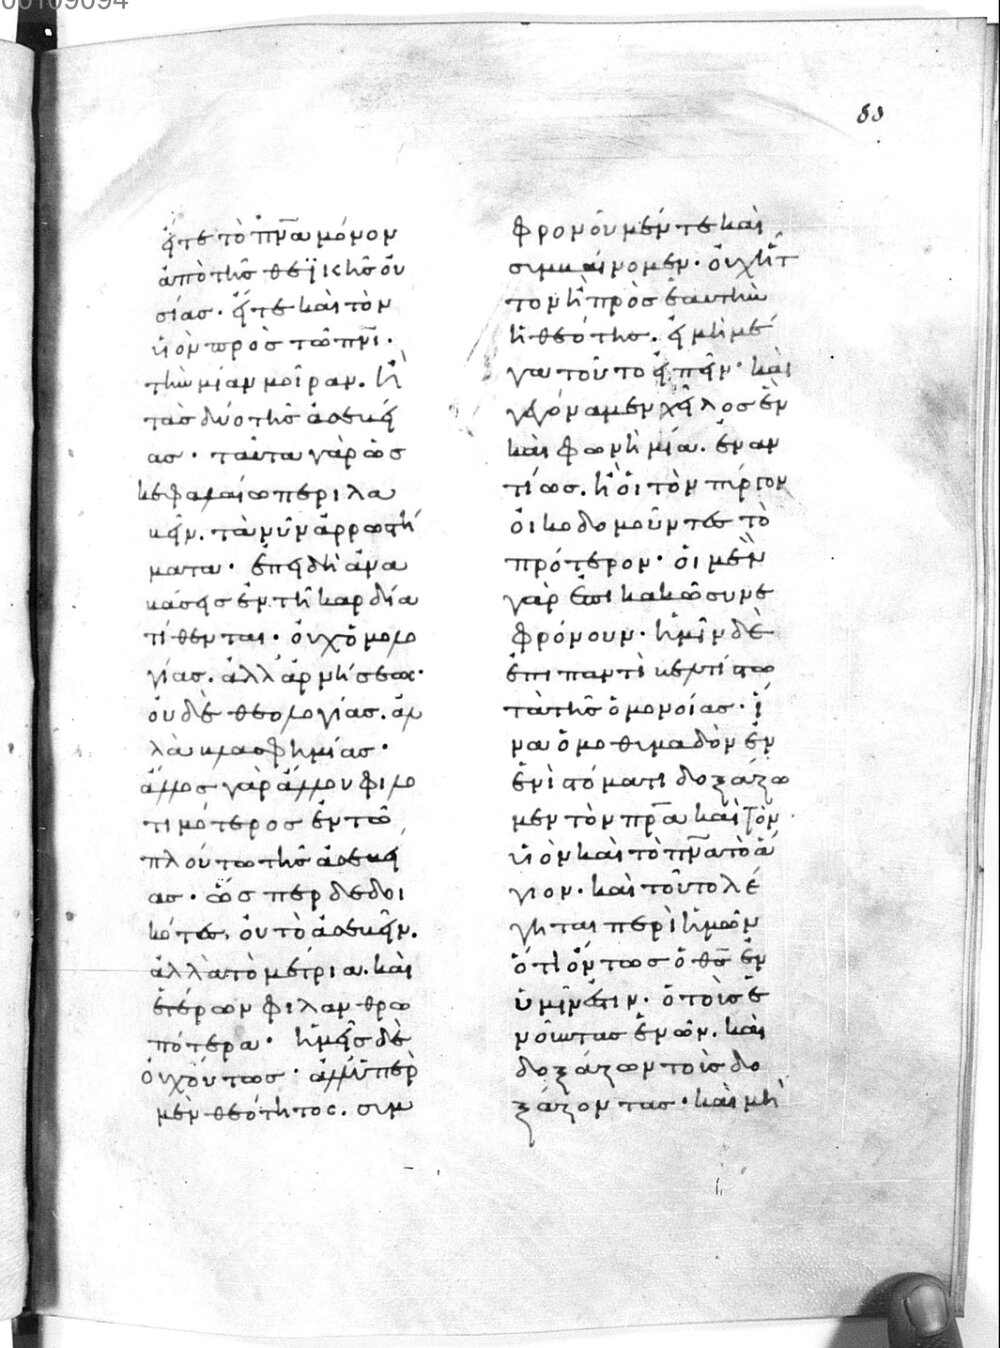 00109094
88
εἴτε τὸ πν̅α μόνον
ἀπὸ τῆς θεϊκῆς οὐ
σίας· εἴτε καὶ τὸν
υἱὸν πρὸς τῶ πν̅ι·
τὴν μίαν μοῖραν. ἢ
τὰς δύο τῆς ἀσεβεί
ας· ταῦτα γὰρ ὡς
κεφαλαίω περιλα
βεῖν. τὰ νῦν ἀρρωστή
ματα· ἐπειδὴ ἀνα
βάσεις ἐν τῆ καρδία
τίθενται· οὐχ ὁμολο
γίας. ἀλλ' ἀρνήσεως·
οὐδὲ θεολογίας. ἀλ
λὰ βλασφημίας·
ἄλλος γὰρ ἄλλου φιλο
τιμότερος ἐν τῶ
πλούτω τῆς ἀσεβεί
ας· ὥσπερ δεδοι
κότες, οὐ τὸ ἀσεβεῖν.
ἀλλὰ τὸ μέτρια. καὶ
ἑτέρων φιλανθρω
πότερα· ἡμεῖς δὲ
οὐχ οὕτως· ἀλλ' ὑπὲρ
μὲν θεότητος. συμ
φρονοῦμέν τε καὶ
συμβαίνομεν· οὐχ ἧτ
τον ἢ πρὸς ἑαυτὴν
ἡ θεότης. εἰ μὴ μέ
γα τοῦτο εἰπεῖν· καὶ
γεγόναμεν χεῖλος ἓν
καὶ φωνὴ μία. ἐναν
τίως. ἢ οἱ τὸν πύργον
οἰκοδομοῦντες τὸ
πρότερον· οἱ μὲν
γὰρ ἐπὶ κακῶ συνε
φρόνουν· ἡμῖν δὲ
ἐπὶ παντὶ βελτίστω
τὰ τῆς ὁμονοίας· ἵ
να ὁμοθυμαδὸν ἐν
ἑνὶ στόματι δοξάζω
μεν τὸν πρ̅α καὶ τὸν
υἱὸν καὶ τὸ πν̅α τὸ ἅ
γιον· καὶ τοῦτο λέ
γηται περὶ ἡμῶν
ὅτι ὄντως ὁ θς̅ ἐν
ὑμῖν ἐστιν· ὁ τοὺς ἑ
νοῦντας ἑνῶν. καὶ
δοξάζων τοὺς δο
ξάζοντας· καὶ μὴ